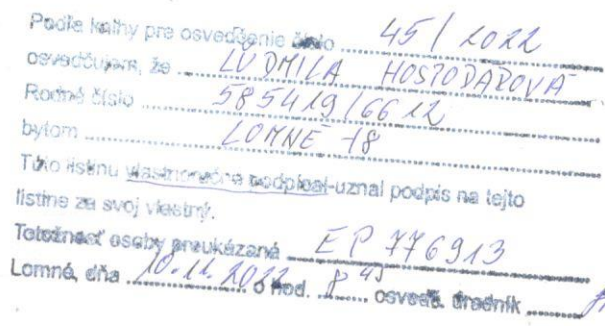 Podľa knihy pre osvedčenie číslo 45/2022
osvedčujem, že ĽUDMILA HOSPODÁROVÁ
Rodné číslo 585419/6612
bytom LOMNÉ 18
Túto listinu vlastnoručne podpísal-uznal podpis na tejto
listine za svoj vlastný.
Totožnosť osoby preukázaná EP 776913
Lomné, dňa 10.11.2022 o hod. 8 45 osvedč. úradník